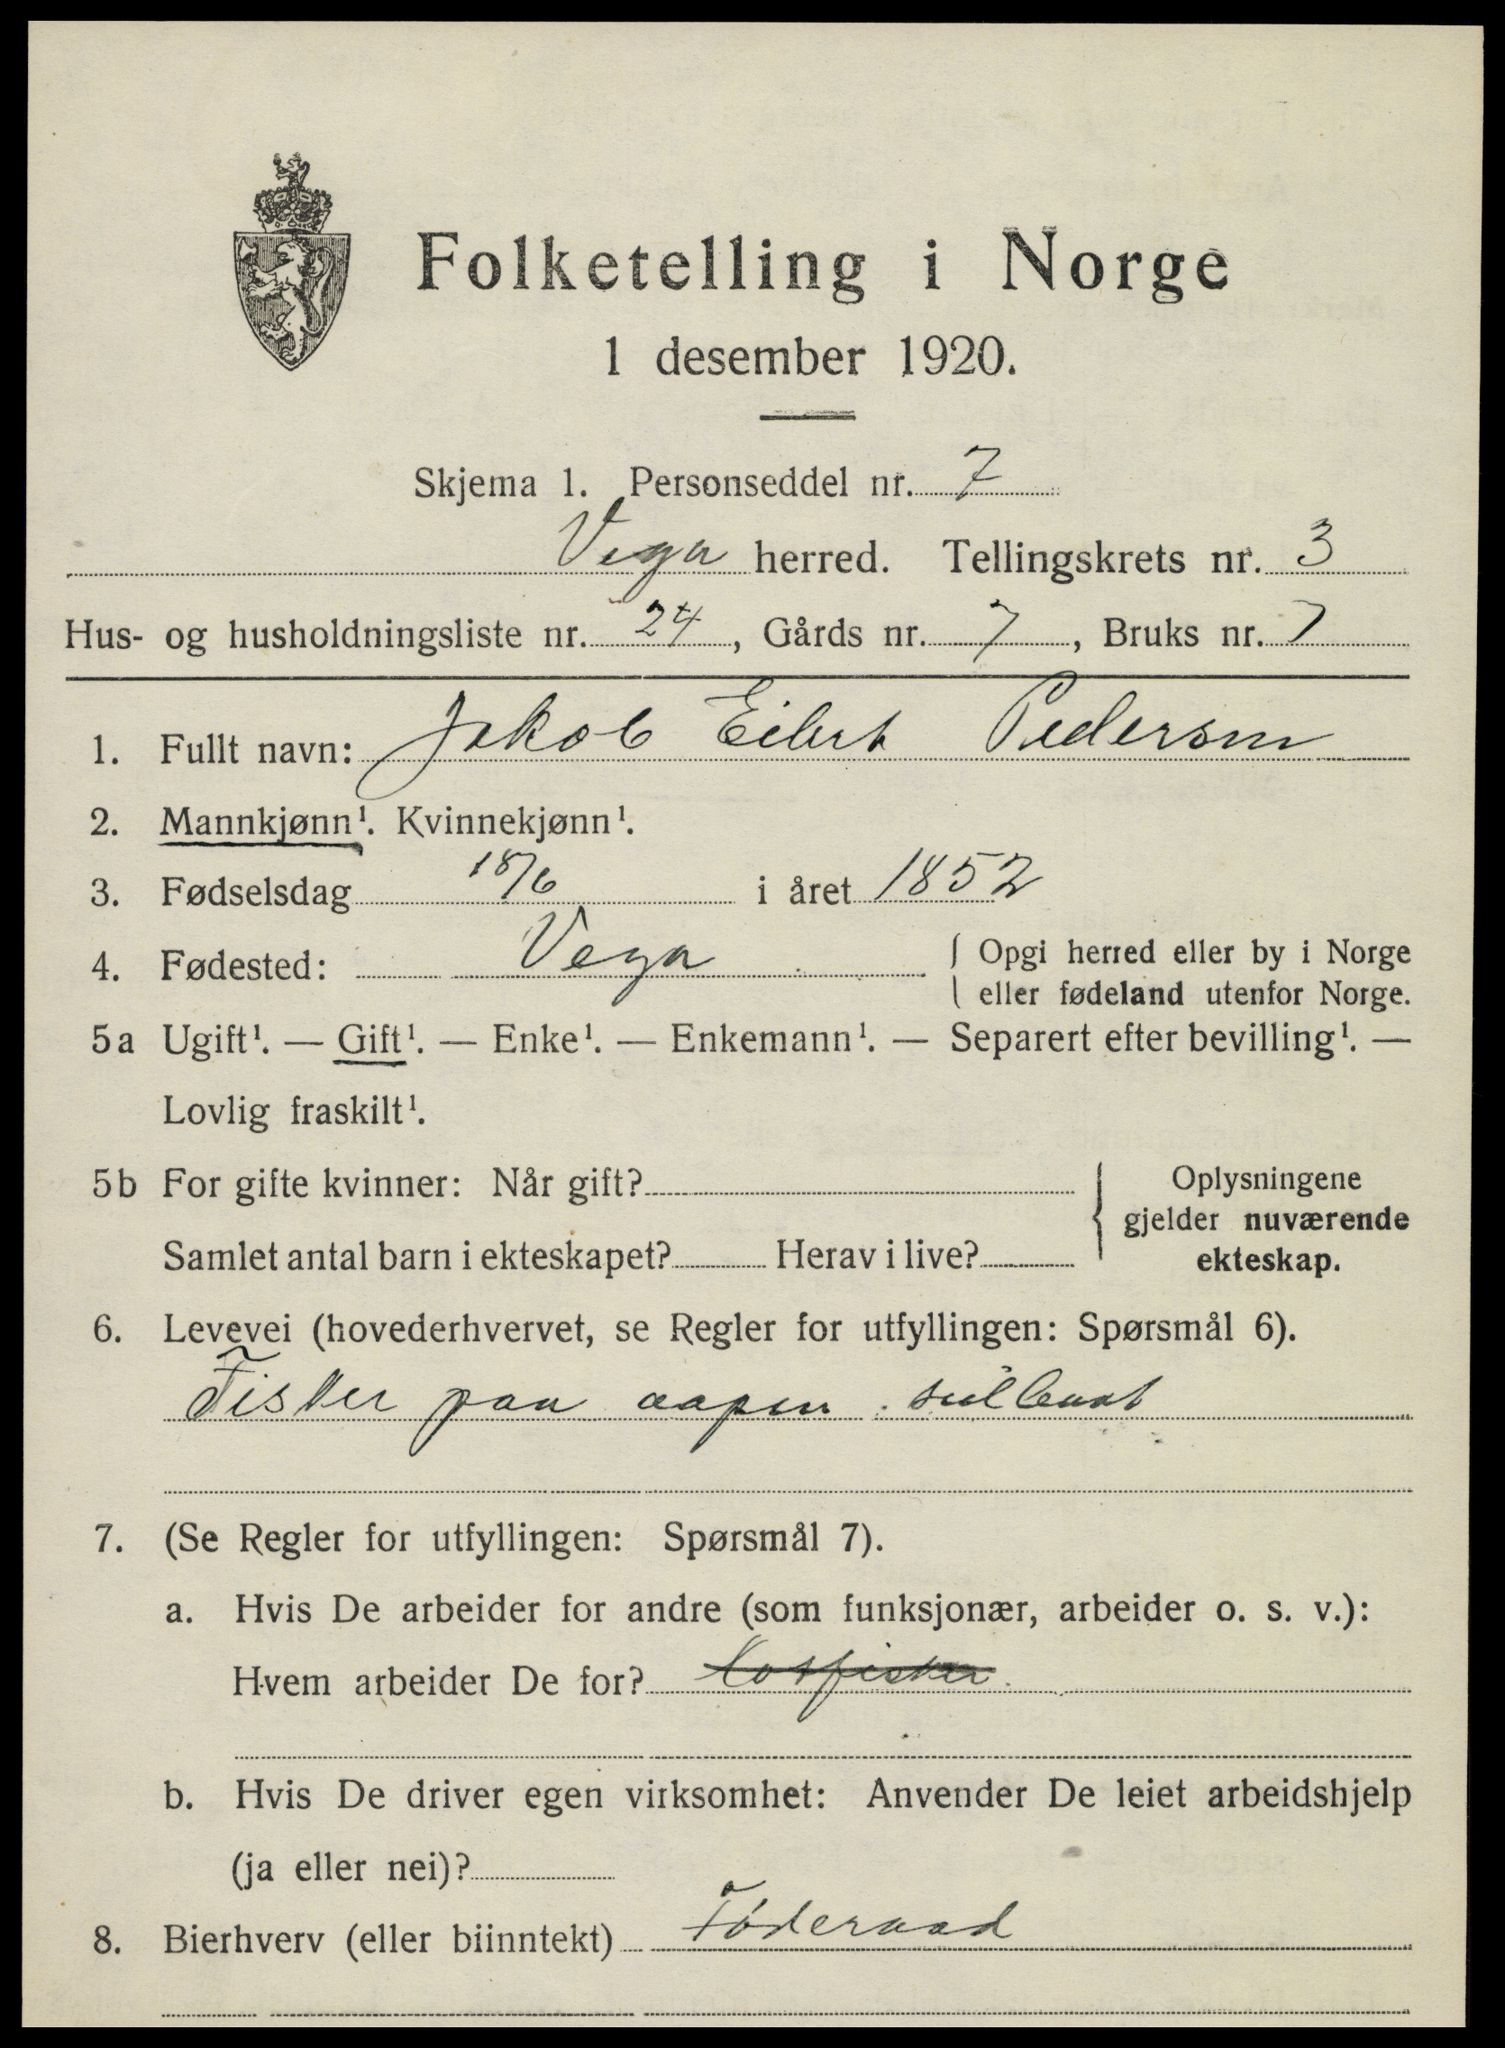 Folketelling i Norge
1 desember 1920.
Skjema 1. Personseddel nr. 7
Vega herred. Tellingskrets nr. 3
Hus- og husholdningsliste nr. 24, Gårds nr. 7, Bruks nr. 7
1. Fullt navn: Jakob Eilert Pedersen
2. Mannkjønn¹. Kvinnekjønn¹.
3. Fødselsdag 18/6 i året 1852
4. Fødested: Vega { Opgi herred eller by i Norge
eller fødeland utenfor Norge.
5a Ugift¹. — Gift¹. — Enke¹. — Enkemann¹. — Separert efter bevilling¹. —
Lovlig fraskilt¹.
5b For gifte kvinner: Når gift?
Samlet antal barn i ekteskapet? Herav i live?
{ Oplysningene
gjelder nuværende
ekteskap.
6. Levevei (hovederhvervet, se Regler for utfyllingen: Spørsmål 6).
Fisker paa aapen seilbaat
7. (Se Regler for utfyllingen: Spørsmål 7).
a. Hvis De arbeider for andre (som funksjonær, arbeider o. s. v.):
Hvem arbeider De for? Lotfisker
b. Hvis De driver egen virksomhet: Anvender De leiet arbeidshjelp
(ja eller nei)?
8. Bierhverv (eller biinntekt) Føderaad